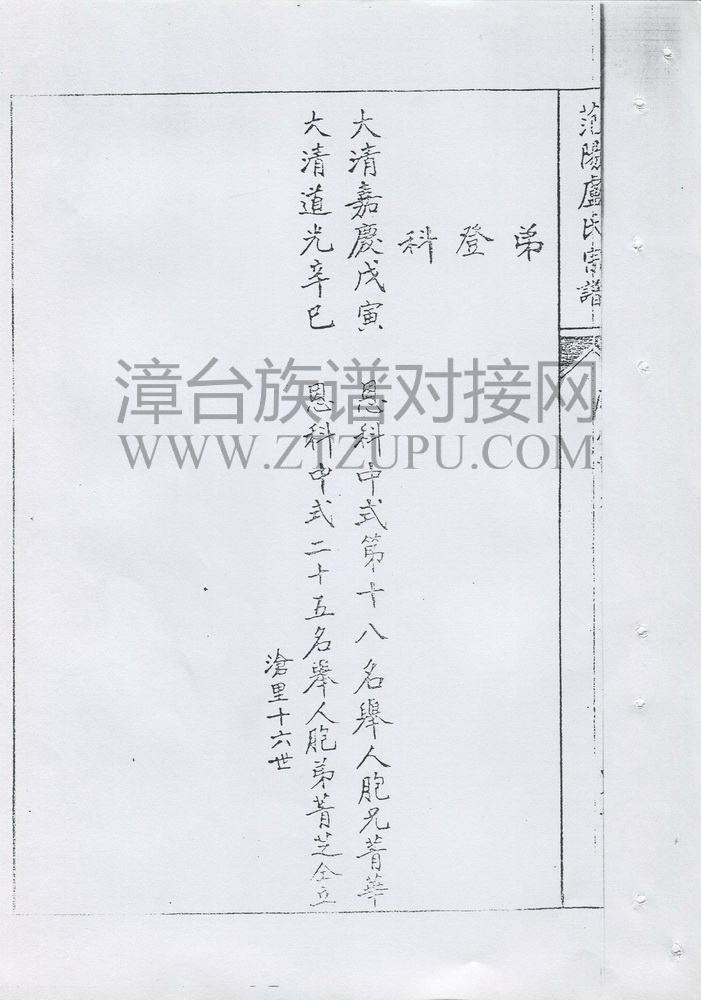 范陽盧氏宗譜
弟登科
大清嘉慶戊寅 恩科中式第十八名舉人胞兄菁華
大清道光辛巳 恩科中式二十五名舉人胞弟菁芝仝立
滄里十六世
漳台族谱对接网
WWW.ZTZUPU.COM